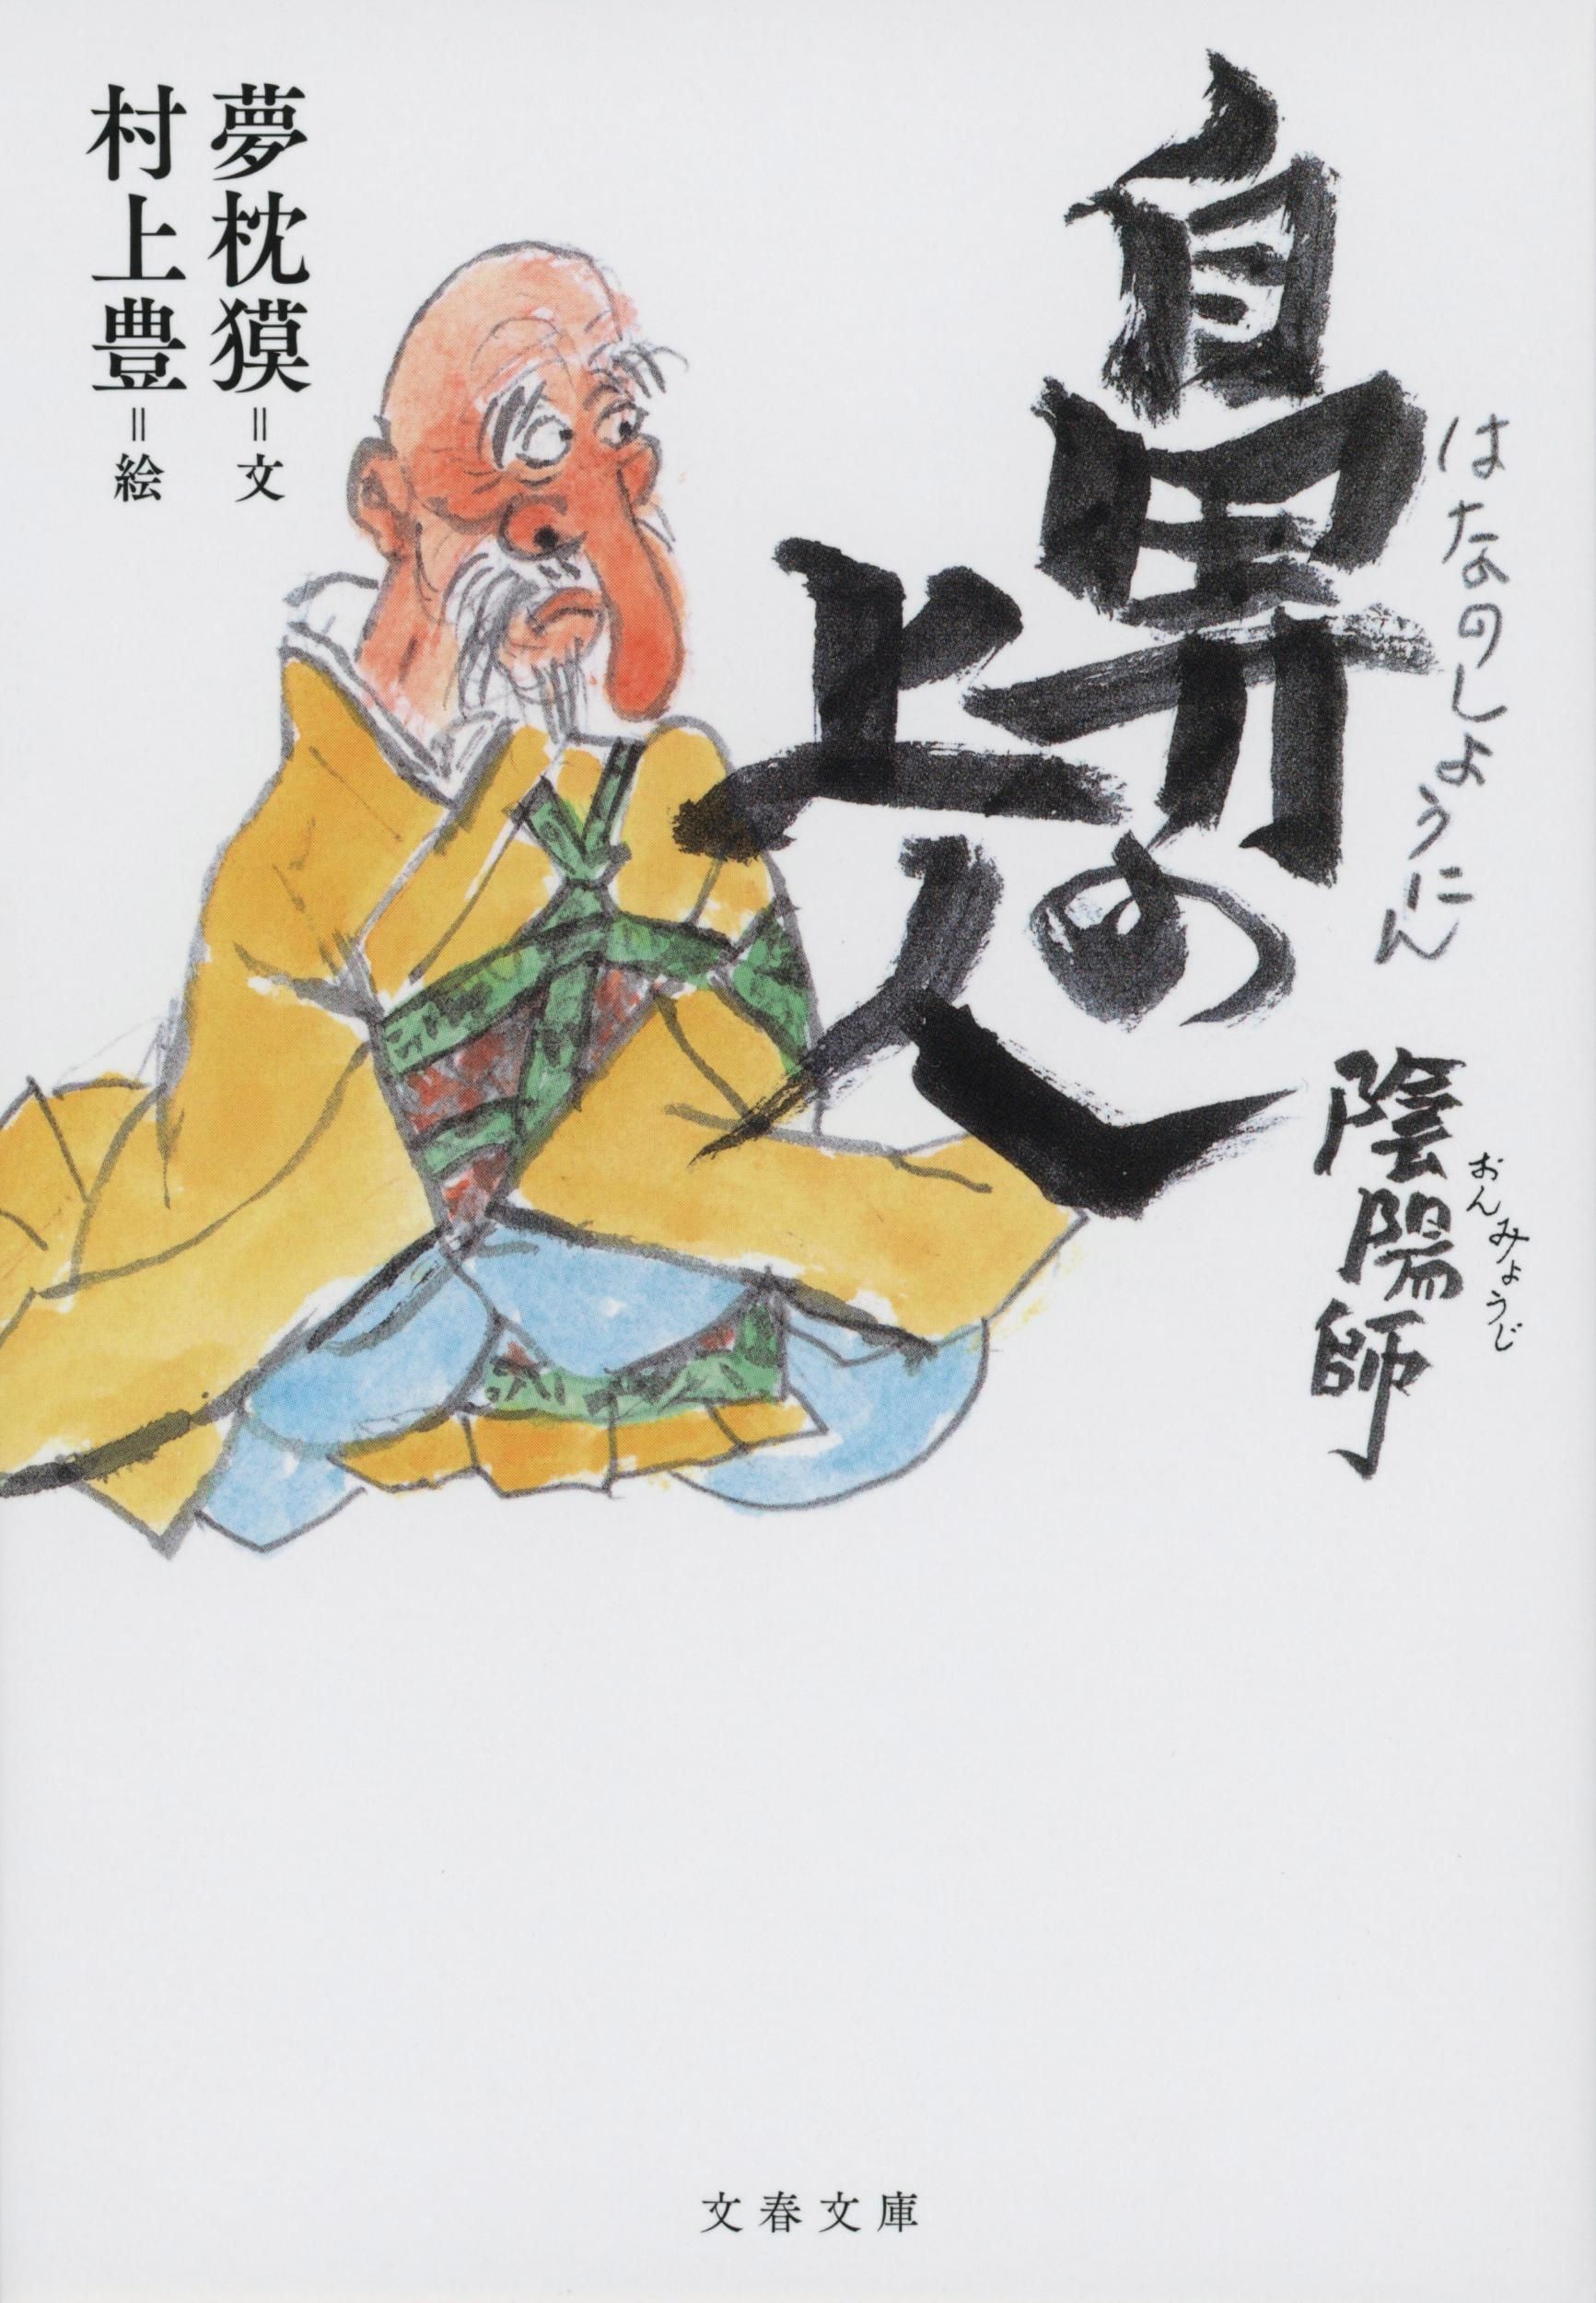 はなのしょうにん
鼻の
上人
おんみょうじ
陰陽師
夢枕獏=文
村上豊=絵
文春文庫